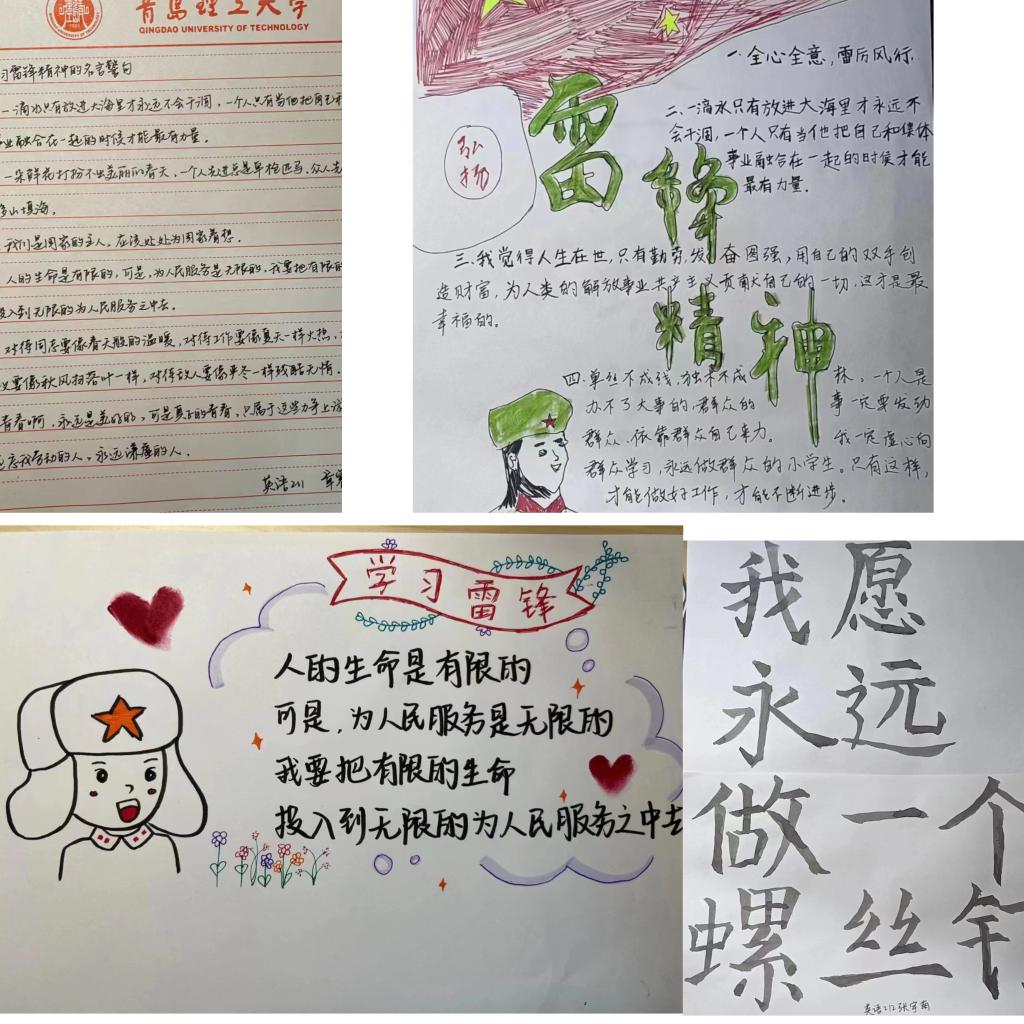 青岛理工大学
QINGDAO UNIVERSITY OF TECHNOLOGY
习雷锋精神的名言警句
一滴水只有放进大海里才永远不会干涸,一个人只有当他把自己和
业融合在一起的时候才能最有力量。
一朵鲜花打扮不出美丽的春天,一个人先进总是单枪匹马,众人先
移山填海。
我们是国家的主人,应该处处为国家着想。
人的生命是有限的,可是,为人民服务是无限的,我要把有限的
投入到无限的为人民服务之中去。
对待同志要像春天般的温暖,对待工作要像夏天一样火热,
义要像秋风扫落叶一样,对待敌人要像严冬一样残酷无情。
青春啊,永远是美好的,可是真正的青春,只属于这些力争上游
忘我劳动的人,永远谦虚的人。
英语211
一、全心全意,雷厉风行.
弘扬
雷锋精神
二、一滴水只有放进大海里才永远不
会干涸,一个人只有当他把自己和集体
事业融合在一起的时候才能
最有力量.
三.我觉得人生在世,只有勤劳,发奋图强,用自己的双手创
造财富,为人类的解放事业共产主义贡献自己的一切,这才是最
幸福的。
四.单丝不成线,独木不成林。一个人是
办不了大事的,群众的事一定要发动
群众、依靠群众自己来办。我一定虚心向
群众学习,永远做群众的小学生。只有这样,
才能做好工作,才能不断进步。
学习雷锋
人的生命是有限的
可是,为人民服务是无限的
我要把有限的生命
投入到无限的为人民服务之中去
我愿
永远
做一个
螺丝钉
英语212张宇雨